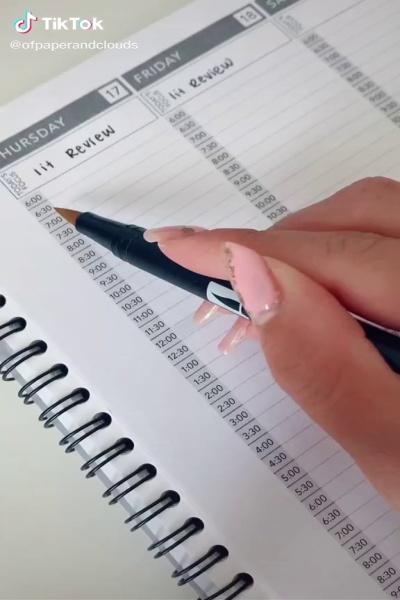 TikTok
@ofpaperandclouds
HURSDAY 17
TODAY'S FOCUS
lit Review
6:00
6:30
7:00
7:30
8:00
8:30
9:00
9:30
10:00
10:30
11:00
11:30
12:00
12:30
1:00
1:30
2:00
2:30
3:00
3:30
4:00
4:30
5:00
5:30
6:00
6:30
7:00
7:30
8:00
8:30
FRIDAY 18
TODAY'S FOCUS
lit Review
6:00
6:30
7:00
7:30
8:00
8:30
9:00
9:30
10:00
10:30
SA